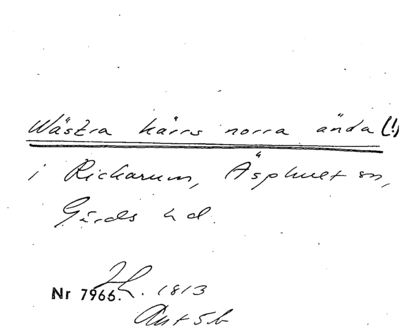 Wästra kärrs norra ända (!)
i Rickarum, Äsphult sn,
Gärds hd.
Nr 7966. 1813
Ant Sb